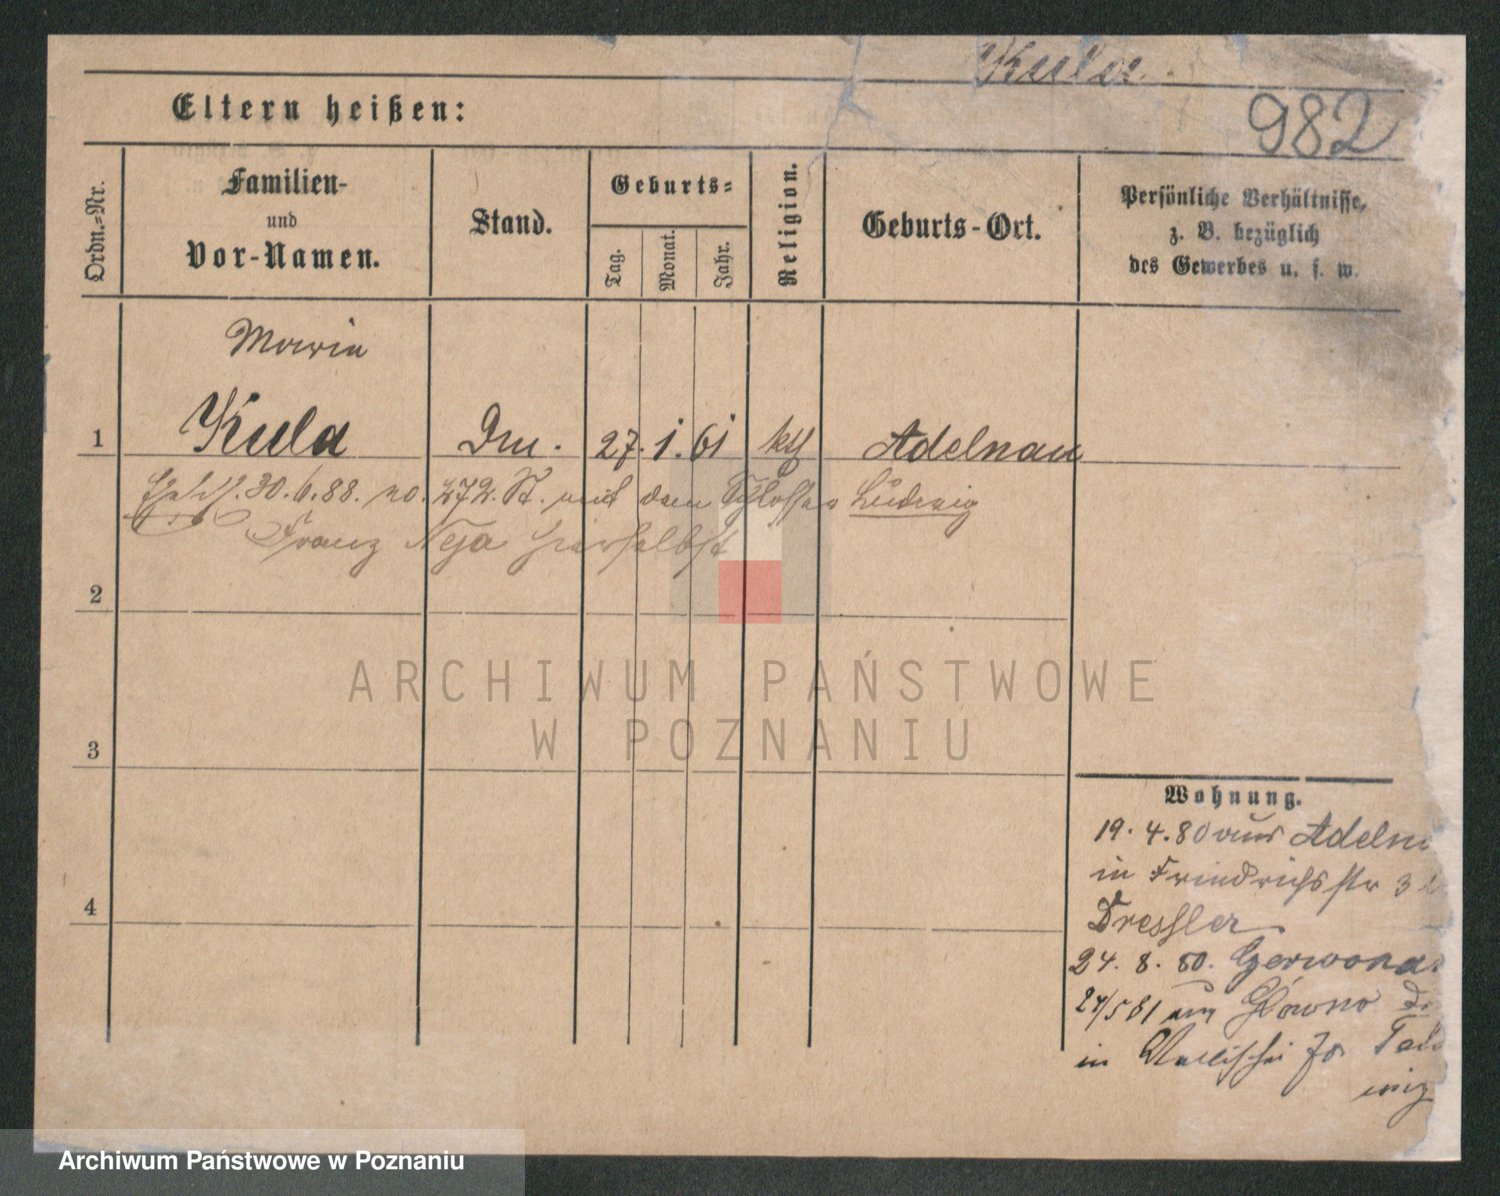 Kula.
982
Eltern heißen:
Ordn.-Nr.
Familien-
und
Vor-Namen.
Stand.
Geburts-
Tag.
Monat.
Jahr.
Religion.
Geburts-Ort.
Persönliche Verhältnisse,
z. B. bezüglich
des Gewerbes u. s. w.
Marie
1 Kula Dm. 27. 1. 61 kth Adelnau
30. 6. 88. no. 272. St. mit dem Schlosser Ludwig
Franz Neja hierselbst
2
3
4
Wohnung.
19. 4. 80 aus Adeln
in Friedrichsstr 3
Dressler
24. 8. 80. Gerwona
24/5 81 aus Główno
in Wallischei
ARCHIWUM PAŃSTWOWE
W POZNANIU
Archiwum Państwowe w Poznaniu